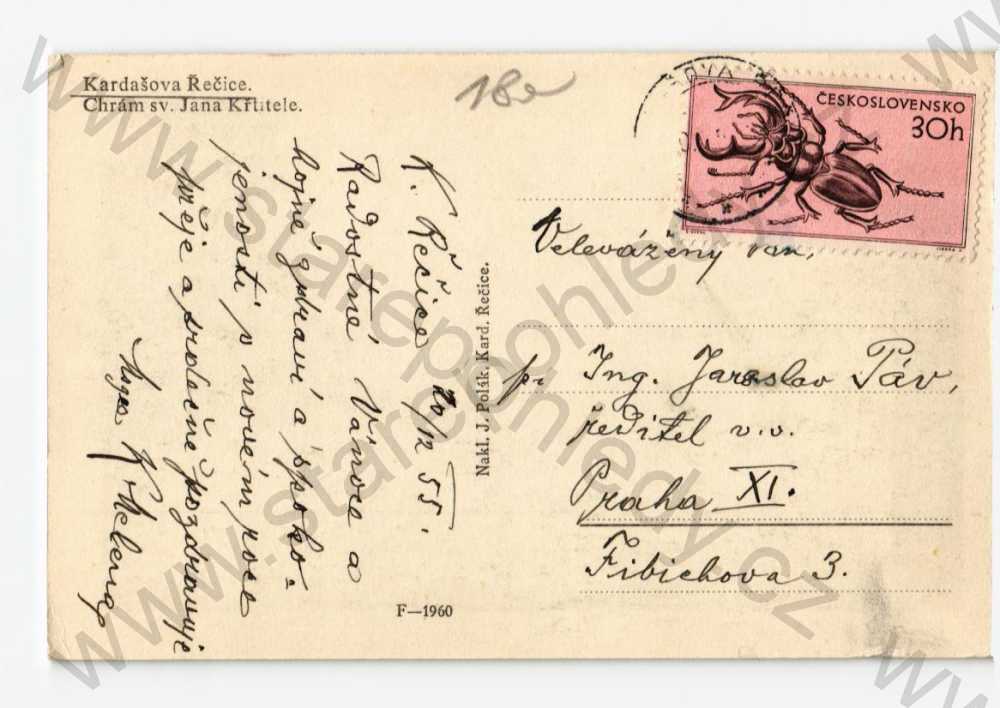 Kardašova Řečice.
Chrám sv. Jana Křtitele.
18e
ČESKOSLOVENSKO
30h
K. Řečice 20/12 55.
Radostné Vánoce a
hojně zdraví a spoko-
jenosti v novém roce
přeje a srdečně pozdravuje
Nakl. J. Polák, Kard. Řečice.
F—1960
Velevážený Pan,
pt Ing. Jaroslav Páv,
ředitel v.v.
Praha XI.
Fibichova 3.
www.starepohledy.cz